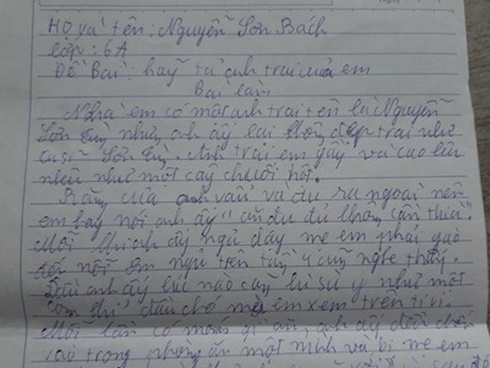 Họ và tên: Nguyễn Sơn Bách
lớp: 6A
Đề Bài: hãy tả anh trai của em
Bài làm
Nhà em có một anh trai tên là Nguyễn
Sơn Tùng nhưng anh ấy lại không đẹp trai như
ca sĩ Sơn Tùng. Anh trai em gầy và cao lêu
nêu như một cây chuối hột.
Răng của anh vẩu và đu ra ngoài nên
em hay nói anh ấy "ăn đu đủ không cần thìa".
Mỗi khi anh ấy ngủ dậy mẹ em phải gào
đến nỗi em ngủ trên tầng 4 cũng nghe thấy.
Đầu anh ấy lúc nào cũng bù xù y như một
con thú đầu chó mà em xem trên ti vi.
Mỗi lần có món gì ăn, anh ấy đều
vào trong phòng ăn một mình và bị mẹ em